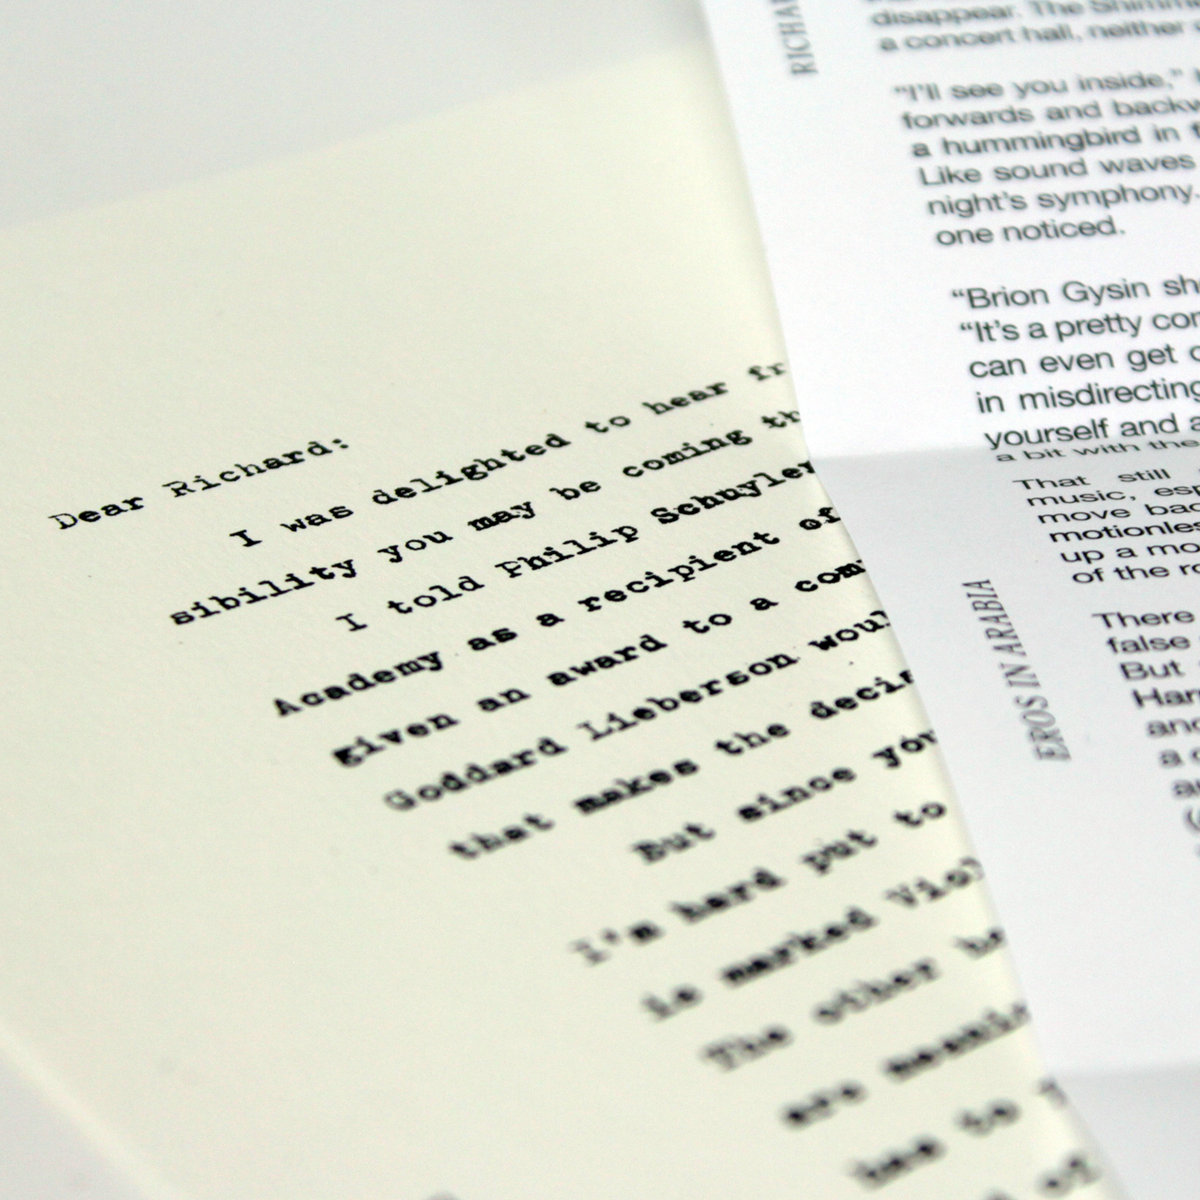 Dear Richard:
I was delighted to hear fr
sibility you may be coming th
I told Philip Schuyler
Academy as a recipient of
given an award to a com
Goddard Lieberson woul
that makes the decis
But since you
I'm hard put to
is marked Viol
The other
are
has to
of
RICHA
disappear. The Shimme
a concert hall, neither
“I'll see you inside,”
forwards and backw
a hummingbird in f
Like sound waves
night's symphony.
one noticed.
“Brion Gysin sh
“It's a pretty con
can even get c
in misdirecting
yourself and a
a bit with the
That still
music, esp
move bac
motionles
up a mo
of the ro
EROS IN ARABIA
There
false
But
Harr
and
a c
an